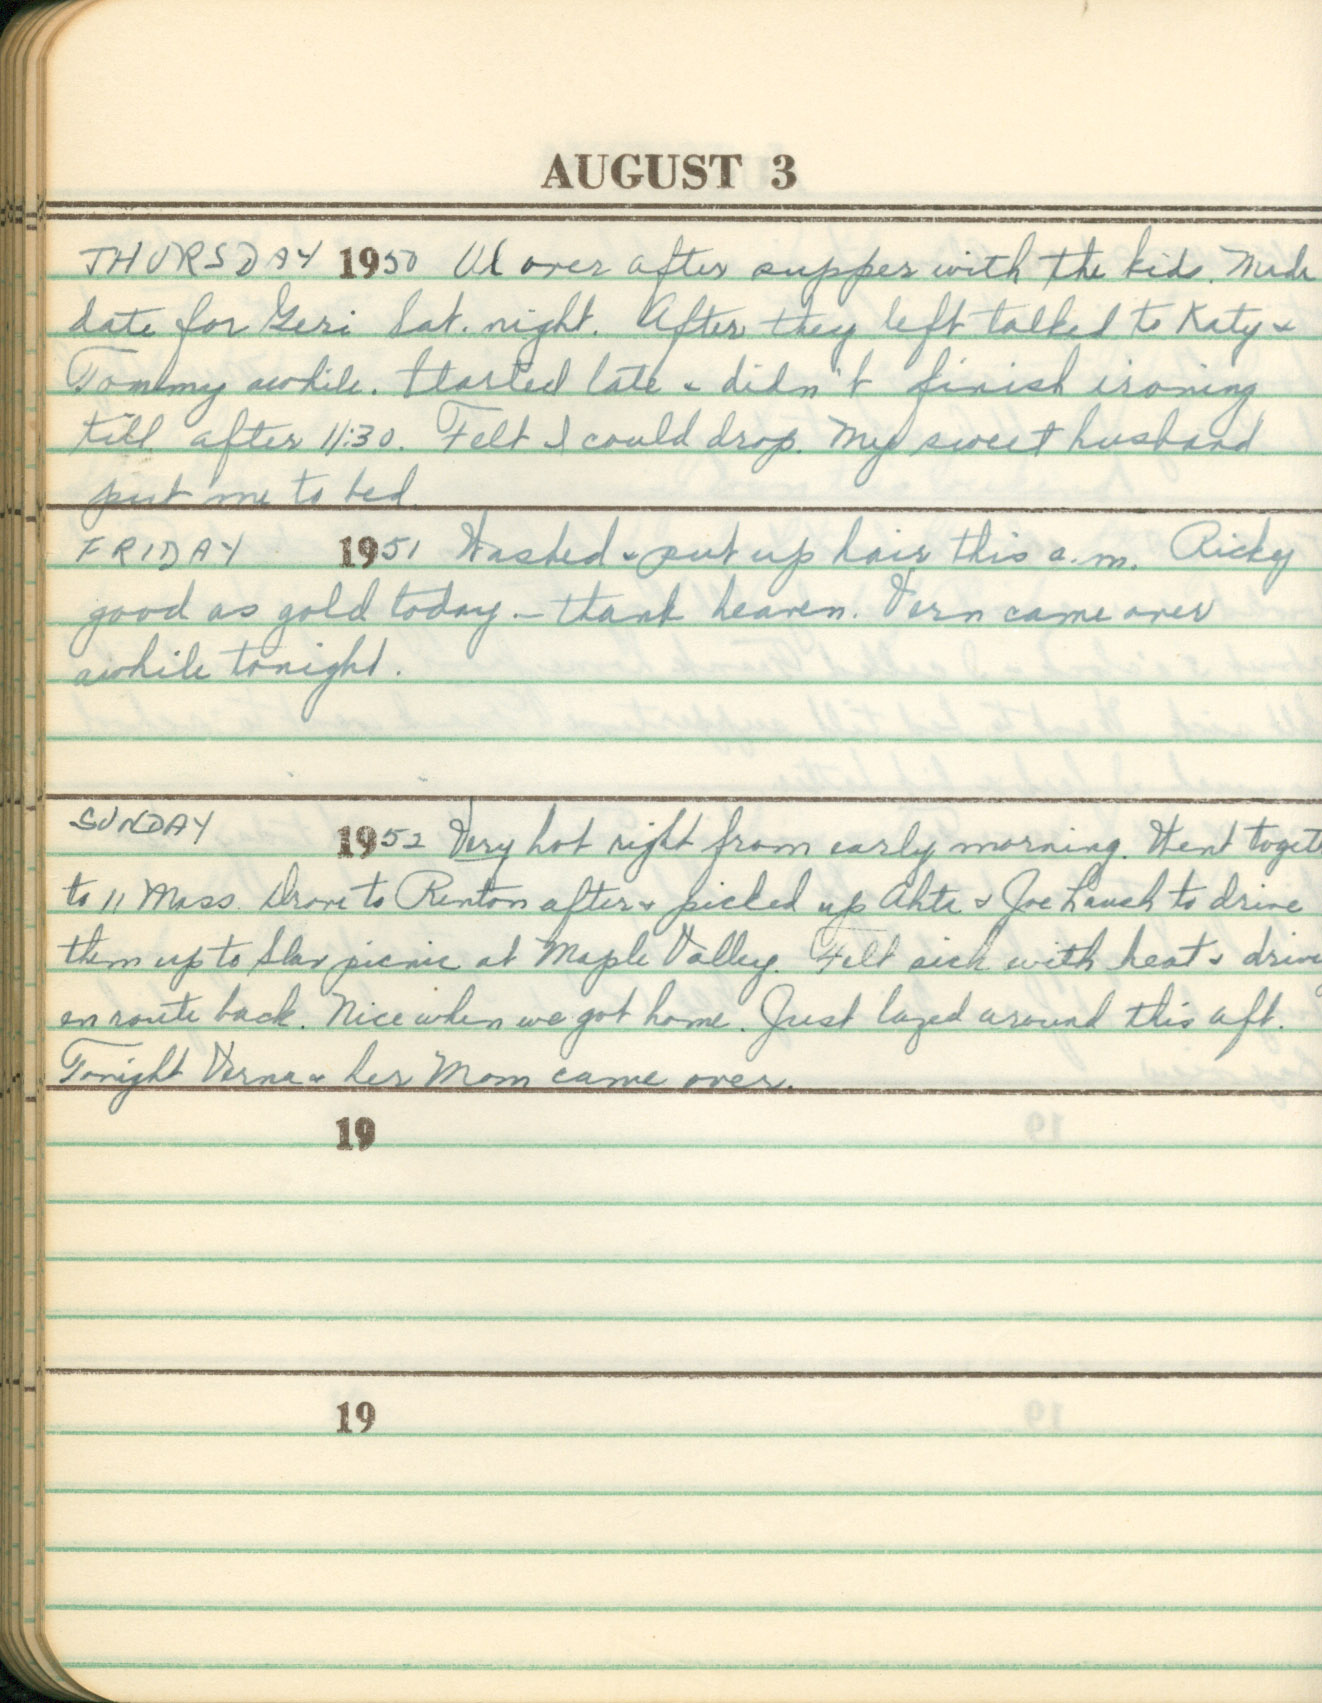 AUGUST 3
THURSDAY 1950 Al over after supper with the kids. Made
date for Geri Sat. night. After they left talked to Katy &
Tommy awhile. Started late & didn't finish ironing
till after 11:30. Felt I could drop. My sweet husband
put me to bed.
FRIDAY 1951 Washed & put up hair this a.m. Ricky
good as gold today – thank heaven. Vern came over
awhile tonight.
SUNDAY
1952 Very hot right from early morning. Went toget
to 11 Mass. Drove to Renton after & picked up & Joe to drive
them up to Slav picnic at Maple Valley. Felt sick with heat & drive
en route back. Nice when we got home. Just lazed around this aft.
Tonight Verna & her Mom came over.
19
19